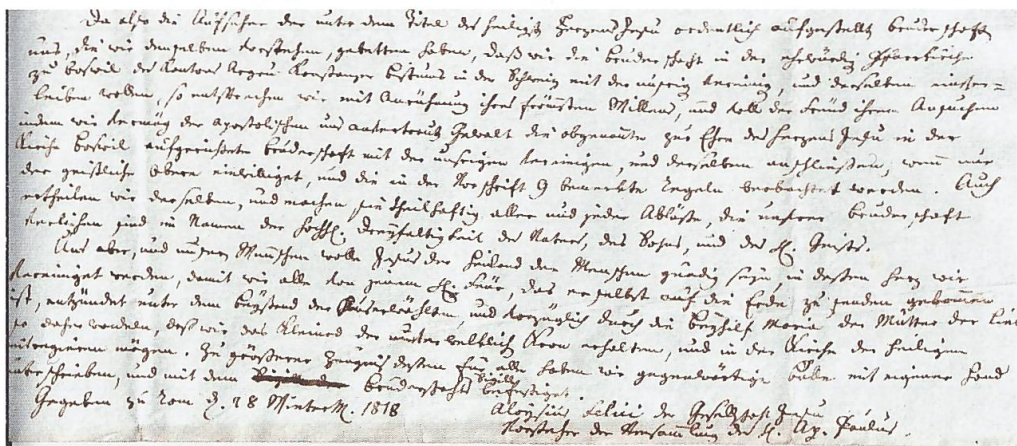 Da also die Aufseher der unter dem Titel des heiligst Herzens Jesu ordentlich aufgestellte bruderschaft
uns, die wir demselben Vorstehen, gebetten haben, daß wir die bruderschaft in der ehrwürdig Pfarrkirche
zu boswil des Kantons Argeu Konstanzer bistums in der Schweiz mit der unsrig Vereinig, und derselben einver=
leiben wollen, so entsprechen wir mit Anrühmung ihres from̄sten Willens, und voll der Freud ihrem Ansuchen
indem wir Vermög der Apostolischen uns anvertraute Gewalt die obgenante zur Ehre des Herzens Jesu in der
Kirche boswil aufgerichtete bruderschaft mit der unsrigen Vereinigen, und derselben anschließen, wenn nur
der geistliche Obere einwilliget, und die in der Vorschrift 9 bemerkte Regeln beobachtet werden. Auch
ertheilen wir derselben, und machen sie theilhaftig aller und jeder Abläße, die unsrer bruderschaft
Verliehen sind im Namen der Hochh. Dreyfaltigkeit des Vaters, des Sohns, und des H. Geists.
Uns aber, und unsern Wünschen wolle Jesus der Heiland der Menschen gnädig seyn, in dessen Herz wir
Vereiniget werden, damit wir alle von jenem H. Feur, das er selbst auf die Erde zu senden gekommen
ist, entzündet unter dem beystand der Auserwählten, und Vorzüglich durch die beyhilf Maria der Mutter der Lieb
so daher wandeln, daß wir das Kleinod der unverwelklich Kron erhalten, und in der Kirche der heiligen
mögen. Zu größerer Zeugniß dessen für alle haben wir gegenwärtige bulle mit eigener Hand
unterschrieben, und mit dem Sigill der bruderschaft befestiget.
Gegeben zu Rom d. 28 Winterm. 1818
Aloysius Felici der Gesellschaft Jesu
Vorsteher der Versammlung des H. Ap. Paulus.